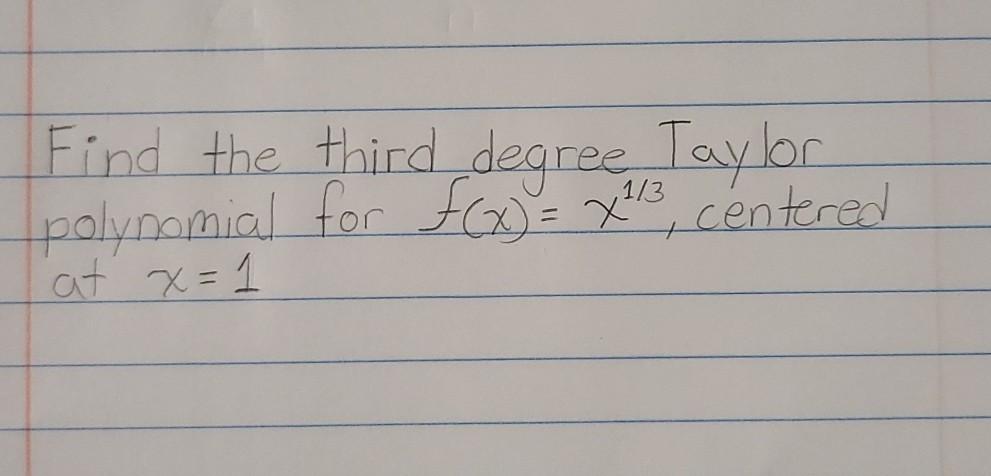 Find the third degree Taylor
polynomial for f(x) = x^1/3, centered
at x = 1